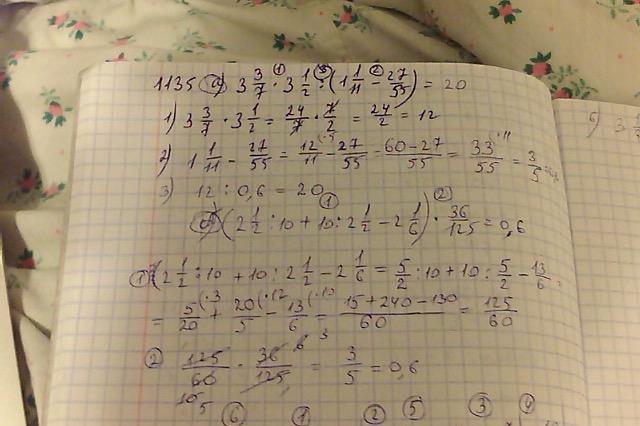 1135 а) 3 3/7 · 3 1/2 : (1 1/11 - 27/55) = 20
1) 3 3/7 · 3 1/2 = 24/7 · 7/2 = 24/2 = 12
2) 1 1/11 - 27/55 = 12/11 - 27/55 = 60-27/55 = 33/55 = 3/5
3) 12 : 0,6 = 20
(2 1/2 : 10 + 10 : 2 1/2 - 2 1/6) · 36/125 = 0,6
① 2 1/2 : 10 + 10 : 2 1/2 - 2 1/6 = 5/2 : 10 + 10 : 5/2 - 13/6
= 5/20 + 20/5 - 13/6 = 15+240-130/60 = 125/60
② 125/60 · 36/125 = 3/5 = 0,6
⑥ ① ② ⑤ ③ ④